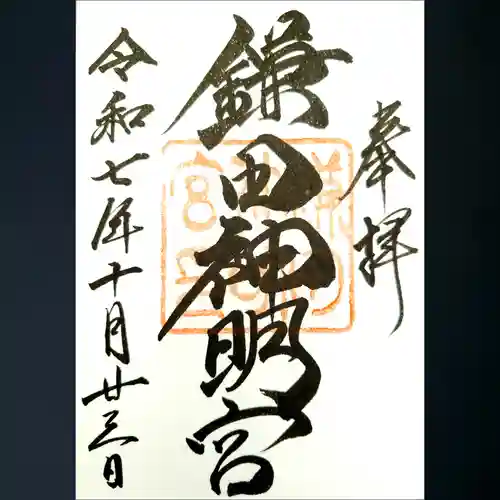 奉拝
鎌田神明宮
令和七年十月廿三日